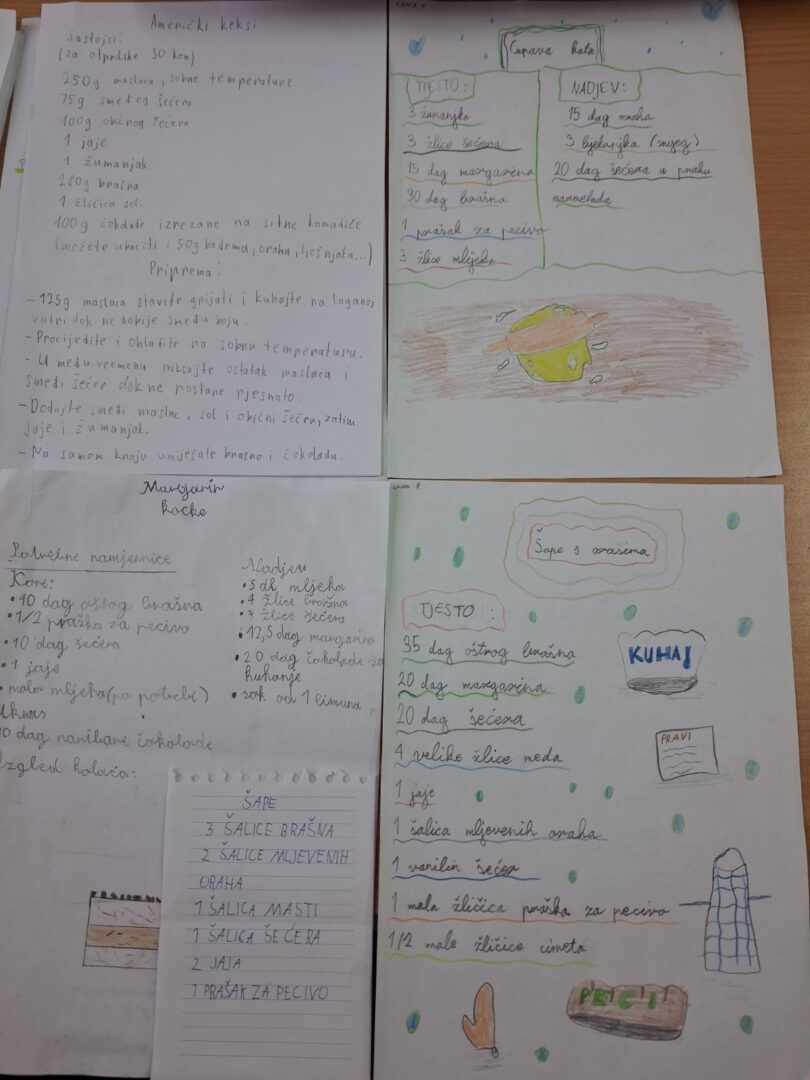 Američki keksi
Sastojci:
(za otprilike 30 kom)
250g maslaca, sobne temperature
75g smeđeg šećera
100g običnog šećera
1 jaje
1 žumanjak
280g brašna
1 žličica soli
100g čokolade izrezane na sitne komadiće
(možete ubaciti i 50g badema, oraha, lješnjaka...)
Priprema:
- 125g maslaca stavite grijati i kuhajte na laganoj
vatri dok ne dobije smeđu boju.
- Procijedite i ohladite na sobnu temperaturu.
- U međuvremenu miksajte ostatak maslaca i
smeđi šećer dok ne postane pjenasto.
- Dodajte smeđi maslac, sol i obični šećer, zatim
jaje i žumanjak.
- Na samom kraju umješate brašno i čokoladu.
LANA P.
Čupava kata
TIJESTO:
3 žumanjka
3 žlice šećera
15 dag margarina
30 dag brašna
1 prašak za pecivo
3 žlice mlijeka
NADJEV:
15 dag oraha
3 bjelanjka (snijeg)
20 dag šećera u prahu
marmelada
Margarin
kocke
Potrebne namjernice
Kore:
• 40 dag oštrog brašna
• 1/2 praška za pecivo
• 10 dag šećera
• 1 jaje
• malo mljeka (po potrebi)
Ukras
0 dag vanilane čokolade
Izgled kolača:
Nadjev
• 5 dl mljeka
• 4 žlice brašna
• žlice šećera
• 12,5 dag margarina
• 20 dag čokolade za
kuhanje
• sok od 1 limuna
ŠAPE
3 ŠALICE BRAŠNA
2 ŠALICE MLJEVENIH
ORAHA
1 ŠALICA MASTI
1 ŠALICA ŠEĆERA
2 JAJA
1 PRAŠAK ZA PECIVO
LANA P.
Šape s orasima
TIJESTO:
35 dag oštrog brašna
20 dag margarina
20 dag šećera
4 velike žlice meda
1 jaje
1 šalica mljevenih oraha
1 vanilin šećer
1 mala žličica praška za pecivo
1/2 male žličice cimeta
KUHAJ
PRAVI
PECI